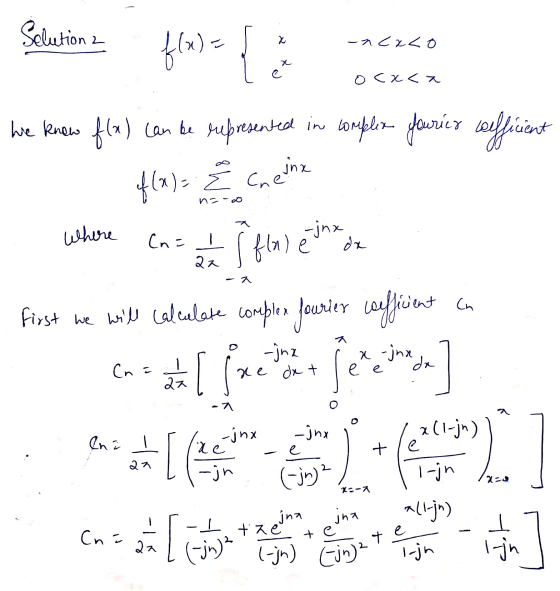 Solution 2
f(x) = { x      -π<x<0
e^x      0<x<π
We know f(x) can be represented in complex fourier coefficient
f(x) = Σ_{n=-∞}^{∞} C_n e^{jnx}
where C_n = 1/2π ∫_{-π}^{π} f(x) e^{-jnx} dx
First we will calculate complex fourier coefficient C_n
C_n = 1/2π [ ∫_{-π}^{0} x e^{-jnx} dx + ∫_{0}^{π} e^x e^{-jnx} dx ]
C_n = 1/2π [ ( x e^{-jnx}/-jn - e^{-jnx}/(-jn)^2 )_{x=-π}^{0} + ( e^{x(1-jn)}/1-jn )_{x=0}^{π} ]
C_n = 1/2π [ -1/(-jn)^2 + π e^{jnπ}/(-jn) + e^{jnπ}/(-jn)^2 + e^{π(1-jn)}/1-jn - 1/1-jn ]